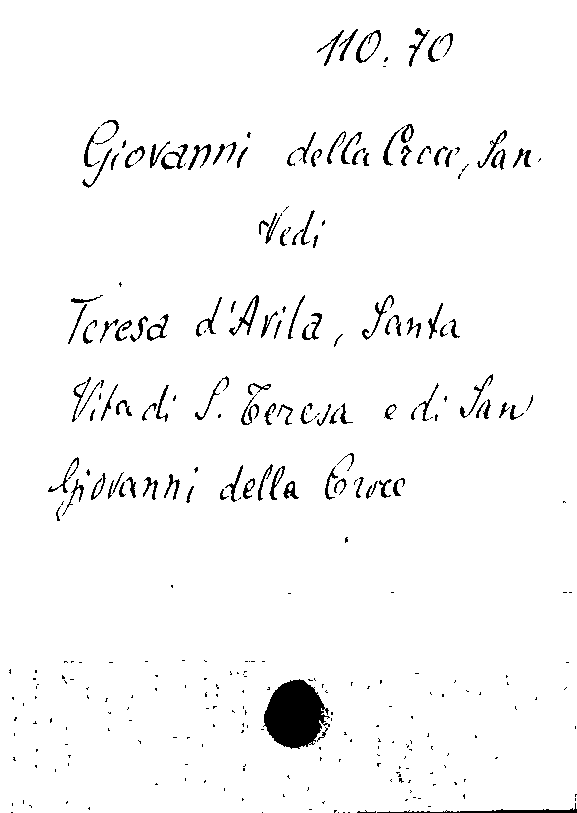 110.70
Giovanni della Croce, San.
Vedi
Teresa d'Avila, Santa
Vita di S. Teresa e di San
Giovanni della Croce